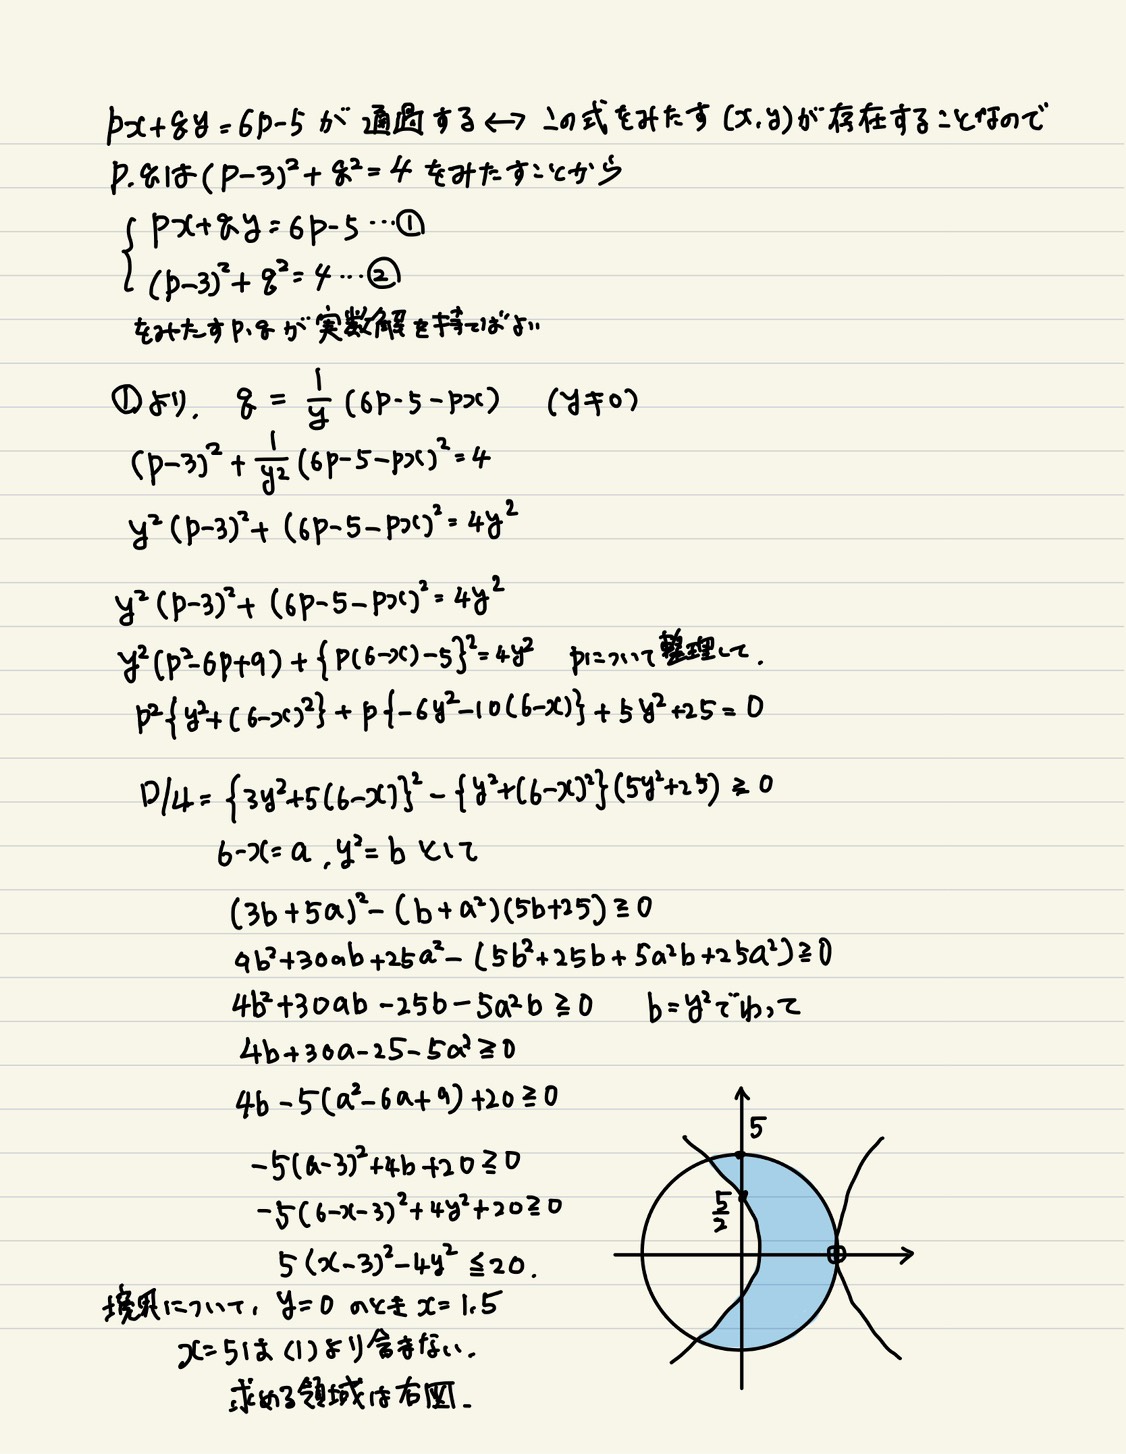 px+qy=6p-5 が 通過する ⟷ この式をみたす (x,y)が存在することなので
p.qは (p-3)²+q²=4 をみたすことから
{ px+qy=6p-5 …①
(p-3)²+q²=4 …②
をみたすp.qが実数解を持てばよい
①より. q = 1/y (6p-5-px) (y≠0)
(p-3)²+1/y²(6p-5-px)²=4
y²(p-3)²+(6p-5-px)²=4y²
y²(p-3)²+(6p-5-px)²=4y²
y²(p²-6p+9)+{p(6-x)-5}²=4y² pについて整理して.
p²{y²+(6-x)²}+p{-6y²-10(6-x)}+5y²+25=0
D/4={3y²+5(6-x)}²-{y²+(6-x)²}(5y²+25)≧0
6-x=a, y²=b として
(3b+5a)²-(b+a²)(5b+25)≧0
9b²+30ab+25a²-(5b²+25b+5a²b+25a²)≧0
4b²+30ab-25b-5a²b≧0 b=y²でわって
4b+30a-25-5a²≧0
4b-5(a²-6a+9)+20≧0
-5(a-3)²+4b+20≧0
-5(6-x-3)²+4y²+20≧0
5(x-3)²-4y²≦20.
境界について, y=0 のとき x=1.5
x=5は(1)より含まない.
求める領域は右図.
5
5/2